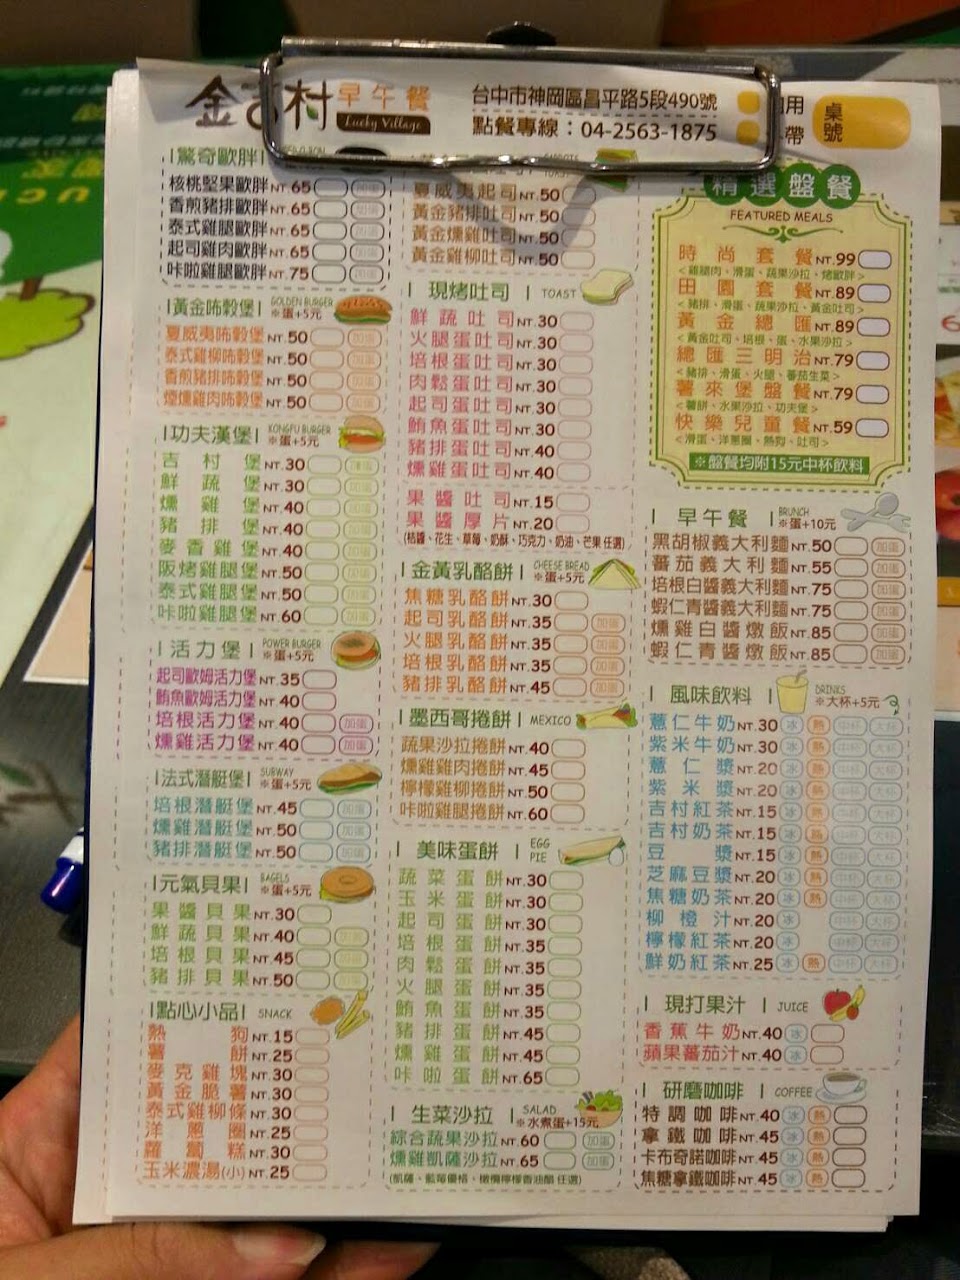 金吉村 早午餐
Lucky Village
台中市神岡區昌平路5段490號
點餐專線：04-2563-1875
桌號
驚奇歐胖
核桃堅果歐胖 NT.65 加蛋
香煎豬排歐胖 NT.65 加蛋
泰式雞腿歐胖 NT.65 加蛋
起司雞肉歐胖 NT.65 加蛋
咔啦雞腿歐胖 NT.75 加蛋
黃金咘穀堡 GOLDEN BURGER ※蛋+5元
夏威夷咘穀堡 NT.50 加蛋
泰式雞柳咘穀堡 NT.50 加蛋
香煎豬排咘穀堡 NT.50 加蛋
煙燻雞肉咘穀堡 NT.50 加蛋
功夫漢堡 KONGFU BURGER ※蛋+5元
吉村堡 NT.30 加蛋
鮮蔬堡 NT.30 加蛋
燻雞堡 NT.40 加蛋
豬排堡 NT.40 加蛋
麥香雞堡 NT.40 加蛋
阪烤雞腿堡 NT.50 加蛋
泰式雞腿堡 NT.50 加蛋
咔啦雞腿堡 NT.60 加蛋
活力堡 POWER BURGER ※蛋+5元
起司歐姆活力堡 NT.35
鮪魚歐姆活力堡 NT.40
培根活力堡 NT.40 加蛋
燻雞活力堡 NT.40 加蛋
法式潛艇堡 SUBWAY ※蛋+5元
培根潛艇堡 NT.45 加蛋
燻雞潛艇堡 NT.50 加蛋
豬排潛艇堡 NT.50 加蛋
元氣貝果 BAGELS ※蛋+5元
果醬貝果 NT.30
鮮蔬貝果 NT.40 加蛋
培根貝果 NT.45 加蛋
豬排貝果 NT.50 加蛋
點心小品 SNACK
熱狗 NT.15
薯餅 NT.25
麥克雞塊 NT.30
黃金脆薯 NT.30
泰式雞柳條 NT.30
洋蔥圈 NT.25
蘿蔔糕 NT.30
玉米濃湯(小) NT.25
夏威夷起司 NT.50
黃金豬排吐司 NT.50
黃金燻雞吐司 NT.50
黃金雞柳吐司 NT.50
現烤吐司 TOAST
鮮蔬吐司 NT.30
火腿蛋吐司 NT.30
培根蛋吐司 NT.30
肉鬆蛋吐司 NT.30
起司蛋吐司 NT.30
鮪魚蛋吐司 NT.30
豬排蛋吐司 NT.40
燻雞蛋吐司 NT.40
果醬吐司 NT.15
果醬厚片 NT.20
(桔醬、花生、草莓、奶酥、巧克力、奶油、芒果 任選)
金黃乳酪餅 CHEESE BREAD ※蛋+5元
焦糖乳酪餅 NT.30
起司乳酪餅 NT.35 加蛋
火腿乳酪餅 NT.35 加蛋
培根乳酪餅 NT.35 加蛋
豬排乳酪餅 NT.45 加蛋
墨西哥捲餅 MEXICO
蔬果沙拉捲餅 NT.40
燻雞雞肉捲餅 NT.45
檸檬雞柳捲餅 NT.50
咔啦雞腿捲餅 NT.60
美味蛋餅 EGG PIE
蔬菜蛋餅 NT.30
玉米蛋餅 NT.30
起司蛋餅 NT.30
培根蛋餅 NT.35
肉鬆蛋餅 NT.35
火腿蛋餅 NT.35
鮪魚蛋餅 NT.35
豬排蛋餅 NT.45
燻雞蛋餅 NT.45
咔啦蛋餅 NT.65
生菜沙拉 SALAD ※水煮蛋+15元
綜合蔬果沙拉 NT.60 加蛋
燻雞凱薩沙拉 NT.65 加蛋
精選盤餐
FEATURED MEALS
時尚套餐 NT.99
<雞腿肉、滑蛋、蔬果沙拉、烤歐胖>
田園套餐 NT.89
<豬排、滑蛋、蔬果沙拉、黃金吐司>
黃金總匯 NT.89
<黃金吐司、培根、蛋、水果沙拉>
總匯三明治 NT.79
<豬排、滑蛋、火腿、蕃茄生菜>
薯來堡盤餐 NT.79
<薯餅、水果沙拉、功夫堡>
快樂兒童餐 NT.59
<滑蛋、洋蔥圈、熱狗、吐司>
※盤餐均附15元中杯飲料
早午餐 BRUNCH ※蛋+10元
黑胡椒義大利麵 NT.50 加蛋
蕃茄義大利麵 NT.55 加蛋
培根白醬義大利麵 NT.75 加蛋
蝦仁青醬義大利麵 NT.75 加蛋
燻雞白醬燉飯 NT.85 加蛋
蝦仁青醬燉飯 NT.85 加蛋
風味飲料 DRINKS ※大杯+5元
薏仁牛奶 NT.30 冰 熱 中杯 大杯
紫米牛奶 NT.30 冰 熱 中杯 大杯
薏仁漿 NT.20 冰 熱 中杯 大杯
紫米漿 NT.20 冰 熱 中杯 大杯
吉村紅茶 NT.15 冰 熱 中杯 大杯
吉村奶茶 NT.15 冰 熱 中杯 大杯
豆漿 NT.15 冰 熱 中杯 大杯
芝麻豆漿 NT.20 冰 熱 中杯 大杯
焦糖奶茶 NT.20 冰 熱 中杯 大杯
柳橙汁 NT.20 冰 中杯 大杯
檸檬紅茶 NT.20 冰 中杯 大杯
鮮奶紅茶 NT.25 冰 熱 中杯 大杯
現打果汁 JUICE
香蕉牛奶 NT.40 冰
蘋果蕃茄汁 NT.40 冰
研磨咖啡 COFFEE
特調咖啡 NT.40 冰 熱
拿鐵咖啡 NT.45 冰 熱
卡布奇諾咖啡 NT.45 冰 熱
焦糖拿鐵咖啡 NT.45 冰 熱